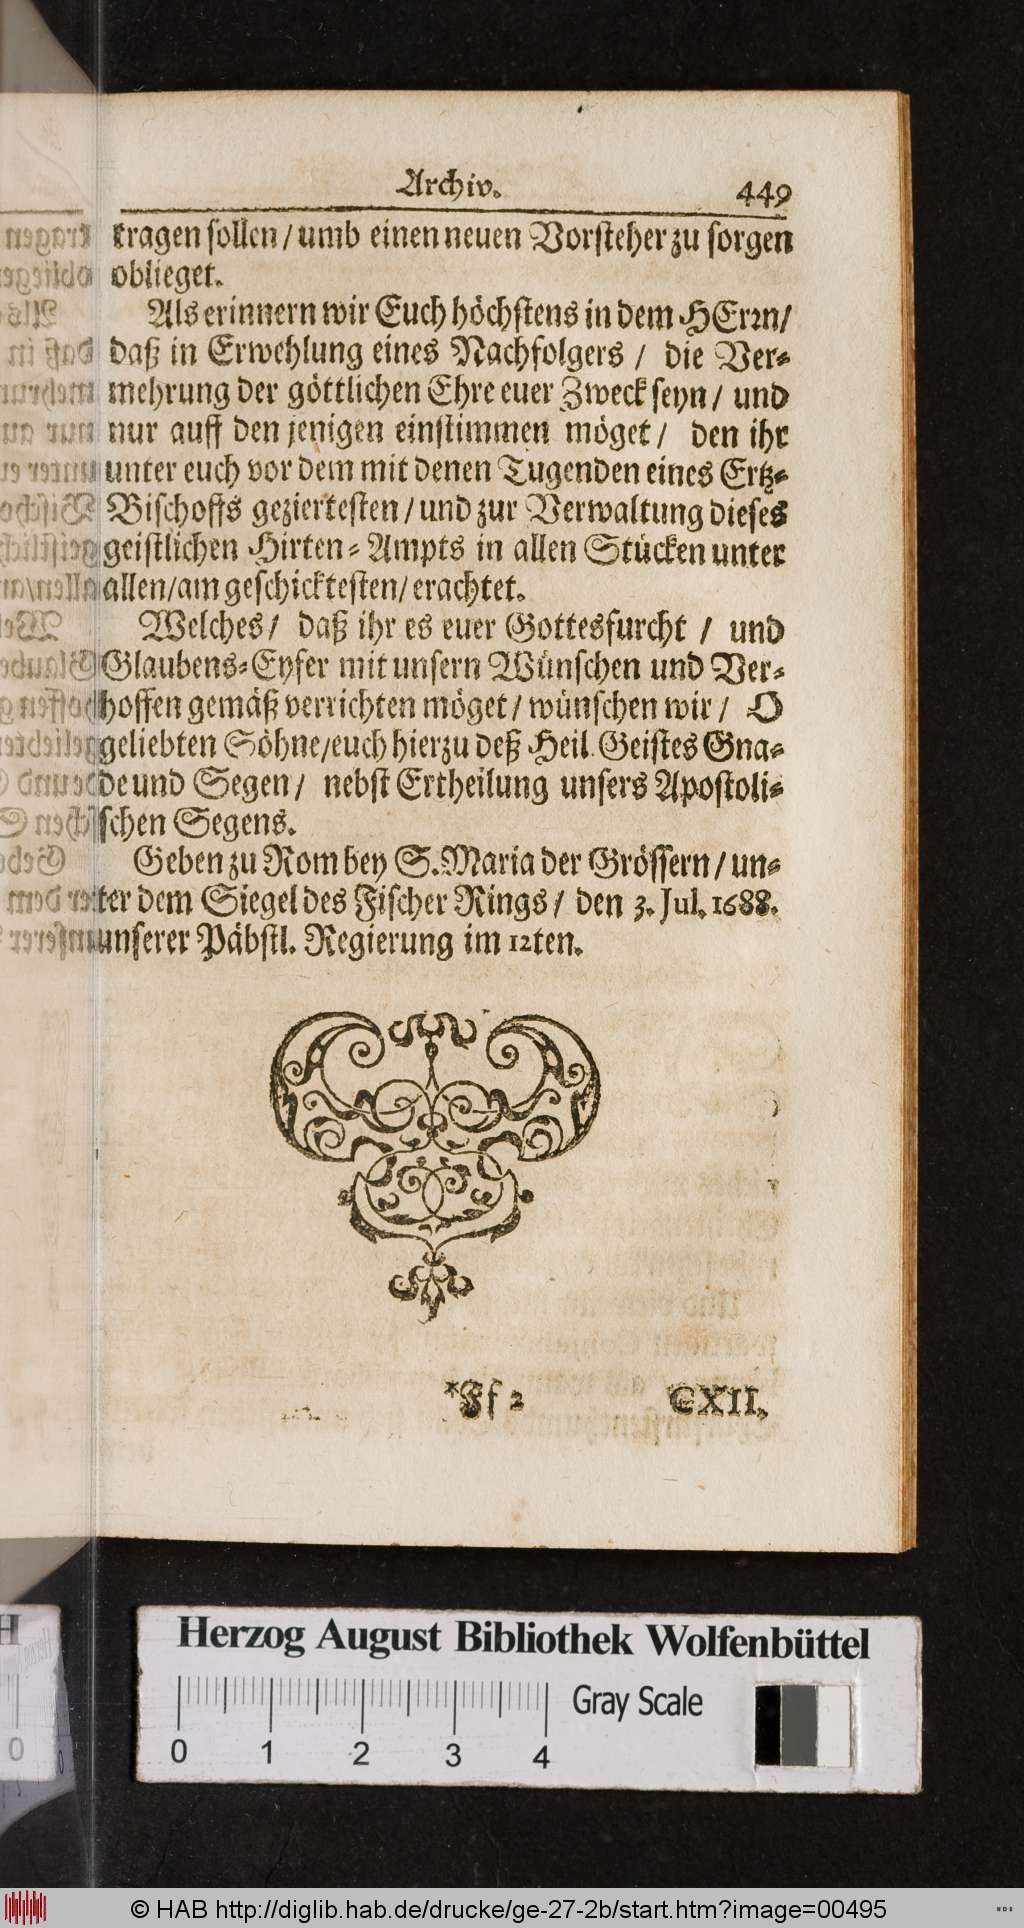 Archiv. 449
tragen sollen / umb einen neuen Vorsteher zu sorgen
oblieget.
Als erinnern wir Euch höchstens in dem HErꝛn /
daß in Erwehlung eines Nachfolgers / die Ver-
mehrung der göttlichen Ehre euer Zweck seyn / und
nur auff den jenigen einstimmen möget / den ihr
unter euch vor dem mit denen Tugenden eines Ertz-
Bischoffs geziertesten / und zur Verwaltung dieses
geistlichen Hirten-Ampts in allen Stücken unter
allen / am geschicktesten / erachtet.
Welches / daß ihr es euer Gottesfurcht / und
Glaubens-Eyfer mit unsern Wünschen und Ver-
hoffen gemäß verrichten möget / wünschen wir / O
geliebten Söhne / euch hierzu deß Heil. Geistes Gna-
de und Segen / nebst Ertheilung unsers Apostoli-
schen Segens.
Geben zu Rom bey S. Maria der Grössern / un-
ter dem Siegel des Fischer Rings / den 3. Jul. 1688.
unserer Päbstl. Regierung im 12ten.
*Ff 2 CXII.
Herzog August Bibliothek Wolfenbüttel
0 1 2 3 4 Gray Scale
© HAB http://diglib.hab.de/drucke/ge-27-2b/start.htm?image=00495